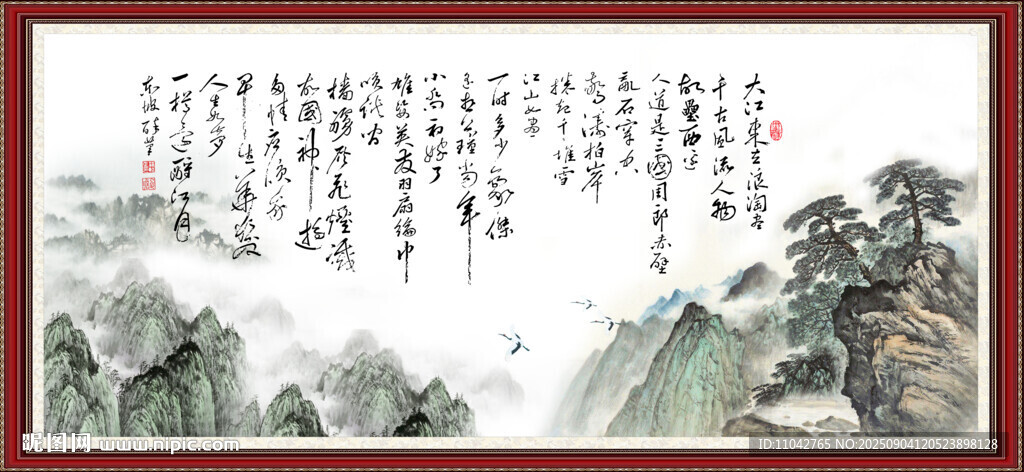 大江東去浪淘盡
千古風流人物
故壘西邊
人道是三國周郎赤壁
亂石穿空
驚濤拍岸
捲起千堆雪
江山如畫
一時多少豪傑
遙想公瑾當年
小喬初嫁了
雄姿英發羽扇綸巾
談笑間
檣艣灰飛煙滅
故國神遊
多情應笑我
早生華髮
人生如夢
一樽還酹江月
東坡
昵图网 www.nipic.com
ID:11042765 NO:20250904120523898128